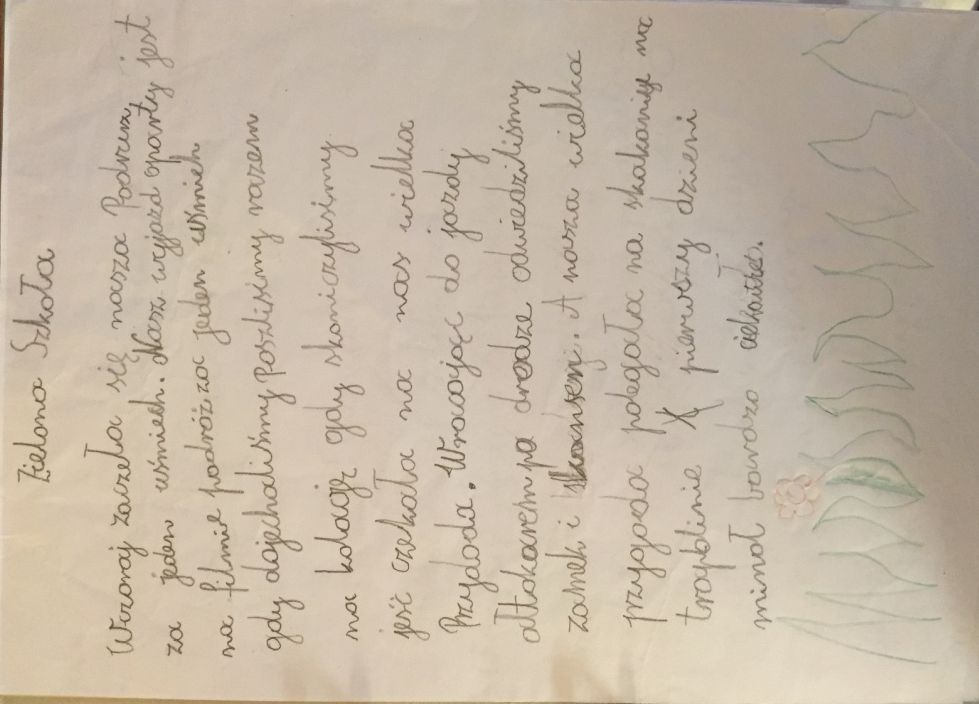 Zielona Szkoła
Wczoraj zaczeła się nasza Podrusz,
za jeden uśmiech. Nasz wyjazd oparty jest
na filmie podróż za jeden uśmieh
gdy dojechaliśmy Poszlisimy razem
na kolacje gdy skoniczylisimy
jeść czekała na nas wielka
Przydoda. Wracając do jazdy
ałtokarem po drodze odwiedziliśmy
zamek i skansenj. A nasza wielka
przygoda polegała na skakaniu na
tranplinie X pierwszy dzieni
minoł bardzo ciekawie.